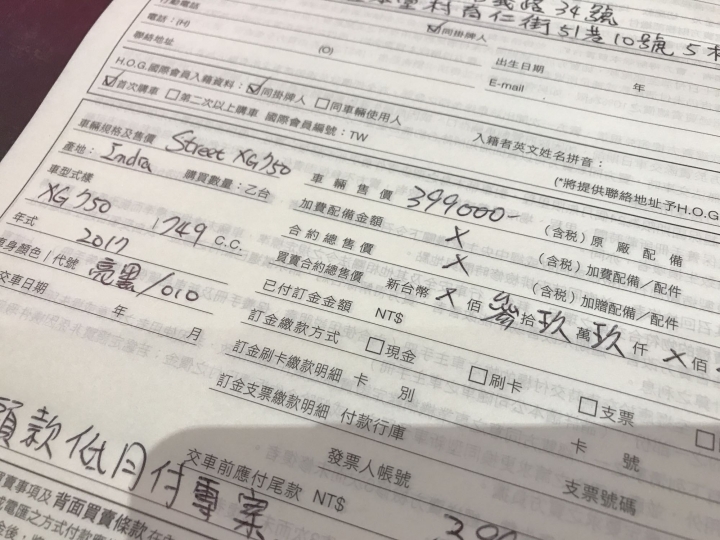 行動電話
義路34號
電話：(H) ☑同掛牌人 村育仁街51巷10號5樓
聯絡地址 (O) 出生日期 年
E-mail
H.O.G.國際會員入籍資料：☑同掛牌人 □同車輛使用人
☑首次購車 □第二次以上購車 國際會員編號：TW 入籍者英文姓名拼音：
(*將提供聯絡地址予H.O.G.
車輛規格及售價 Street XG750 車輛售價 399000- (含稅) 原廠配備
產地：India 購買數量：乙台 加費配備金額 X (含稅) 加費配備／配件
車型式樣 合約總售價 X (含稅) 加贈配備／配件
XG750 1749 C.C. 買賣合約總售價 新台幣 X 佰 參 拾 玖 萬 玖 仟 X 佰
年式 2017 已付訂金金額 NT$
車身顏色/代號 亮黑/010 訂金繳款方式 □現金 □刷卡 □支票
交車日期 年 月 訂金刷卡繳款明細 卡別 卡號
訂金支票繳款明細 付款行庫 支票號碼
發票人帳號
頭款低月付專案 交車前應付尾款 NT$
買賣事項及背面買賣條款
電匯之方式付款